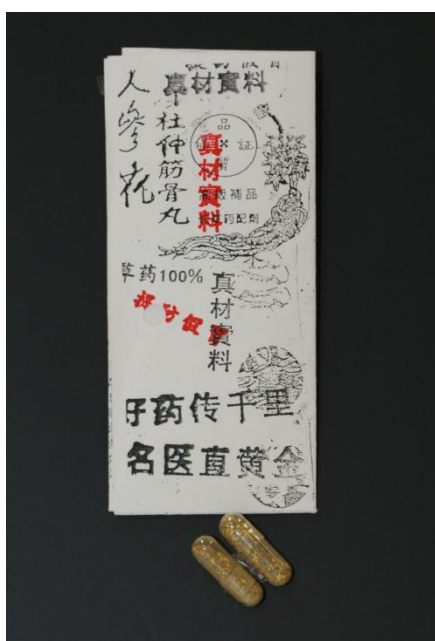 真材實料
人參花
杜仲筋骨丸
品質
証
真材實料
補品
药配剤
草药100%
真材實料
好药传千里
名医直黄金